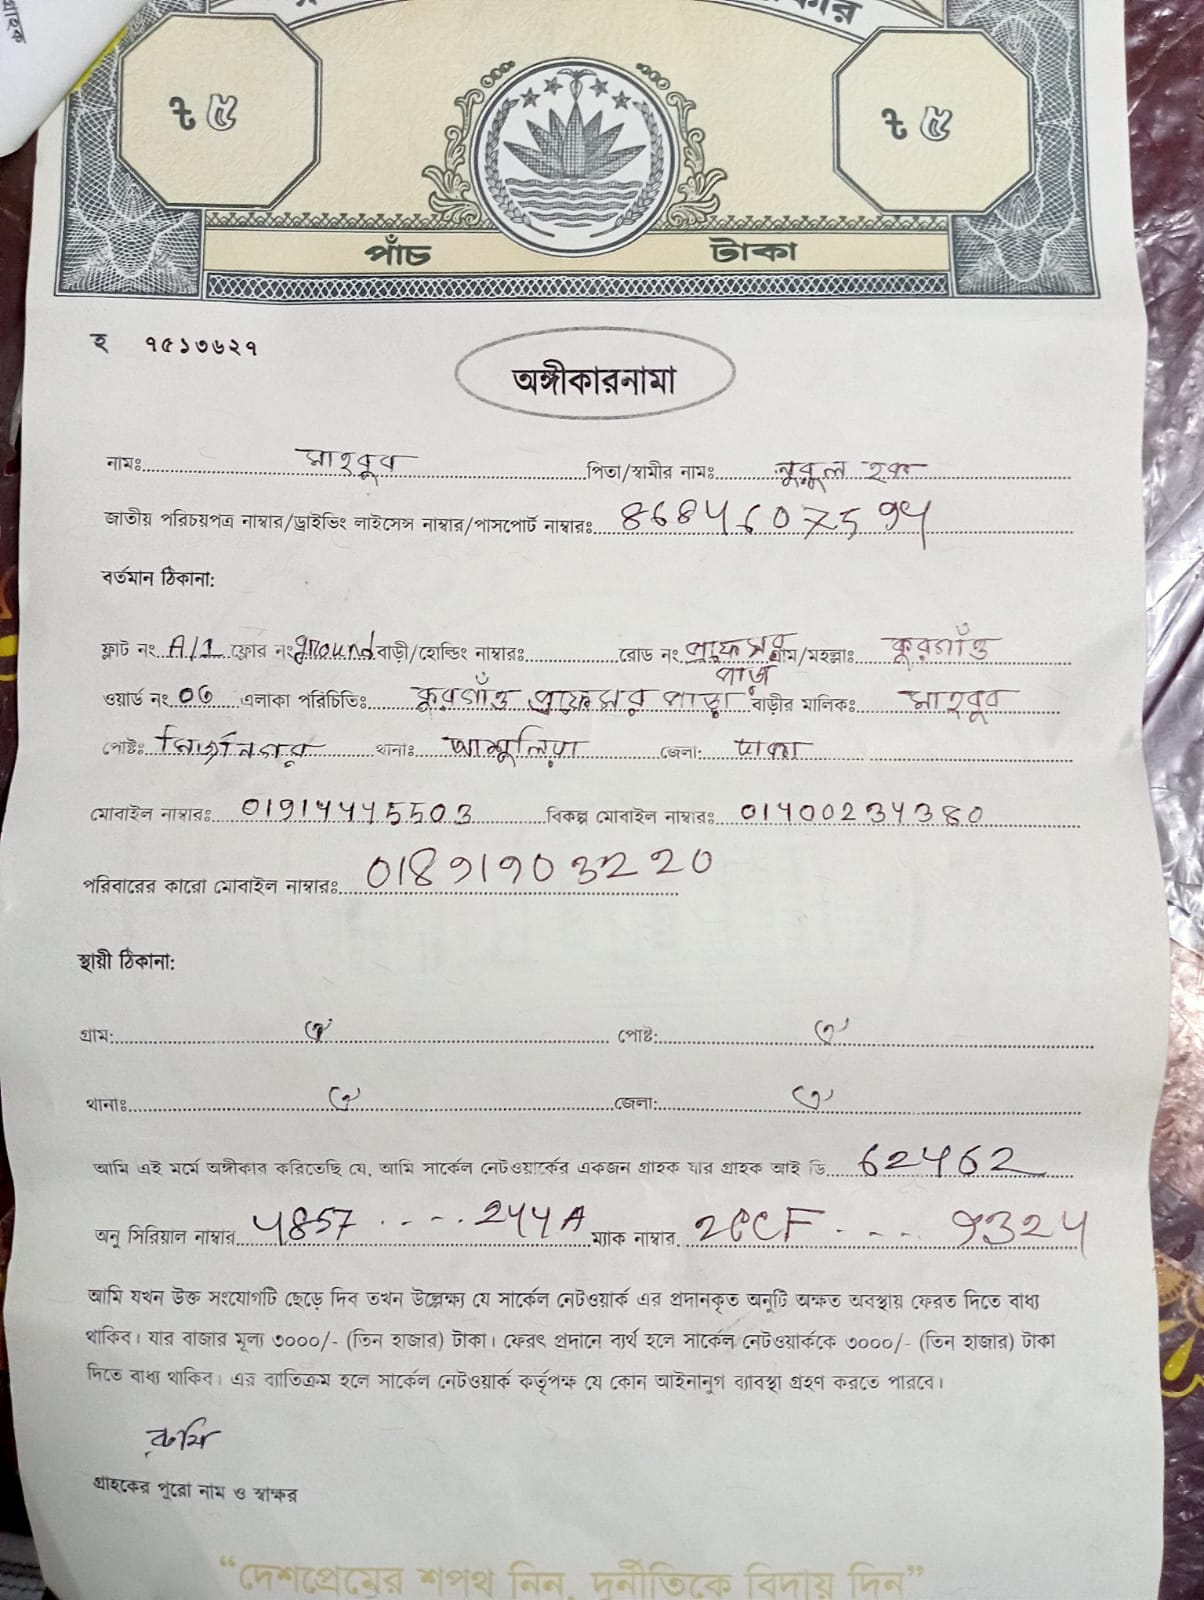 ৳ ৫ ৳ ৫
পাঁচ টাকা
হ ৭৫১৩৬২৭
অঙ্গীকারনামা
নামঃ মাহবুব পিতা/স্বামীর নামঃ নুরুল হক
জাতীয় পরিচয়পত্র নাম্বার/ড্রাইভিং লাইসেন্স নাম্বার/পাসপোর্ট নাম্বারঃ
বর্তমান ঠিকানা:
ফ্লাট নং A/1 ফ্লোর নং ground বাড়ী/হোল্ডিং নাম্বারঃ রোড নং প্রফেসর পাড়া গ্রাম/মহল্লাঃ কুরগাঁও
ওয়ার্ড নং ০৩ এলাকা পরিচিতিঃ কুরগাঁও প্রফেসর পাড়া বাড়ীর মালিকঃ মাহবুব
পোষ্টঃ মির্জানগর থানাঃ আশুলিয়া জেলা: ঢাকা
মোবাইল নাম্বারঃ 01914445503 বিকল্প মোবাইল নাম্বারঃ 01400234380
পরিবারের কারো মোবাইল নাম্বারঃ
স্থায়ী ঠিকানা:
গ্রাম: পোষ্ট:
থানাঃ জেলা:
আমি এই মর্মে অঙ্গীকার করিতেছি যে, আমি সার্কেল নেটওয়ার্কের একজন গ্রাহক যার গ্রাহক আই ডি 62462
অনু সিরিয়াল নাম্বার 4857 ..... 244A ম্যাক নাম্বার 9324
আমি যখন উক্ত সংযোগটি ছেড়ে দিব তখন উল্লেক্ষ্য যে সার্কেল নেটওয়ার্ক এর প্রদানকৃত অনুটি অক্ষত অবস্থায় ফেরত দিতে বাধ্য
থাকিব। যার বাজার মূল্য ৩০০০/- (তিন হাজার) টাকা। ফেরৎ প্রদানে ব্যর্থ হলে সার্কেল নেটওয়ার্ককে ৩০০০/- (তিন হাজার) টাকা
দিতে বাধ্য থাকিব। এর ব্যাতিক্রম হলে সার্কেল নেটওয়ার্ক কর্তৃপক্ষ যে কোন আইনানুগ ব্যাবস্থা গ্রহণ করতে পারবে।
রুমি
গ্রাহকের পুরো নাম ও স্বাক্ষর
“দেশপ্রেমের শপথ নিন, দুর্নীতিকে বিদায় দিন”